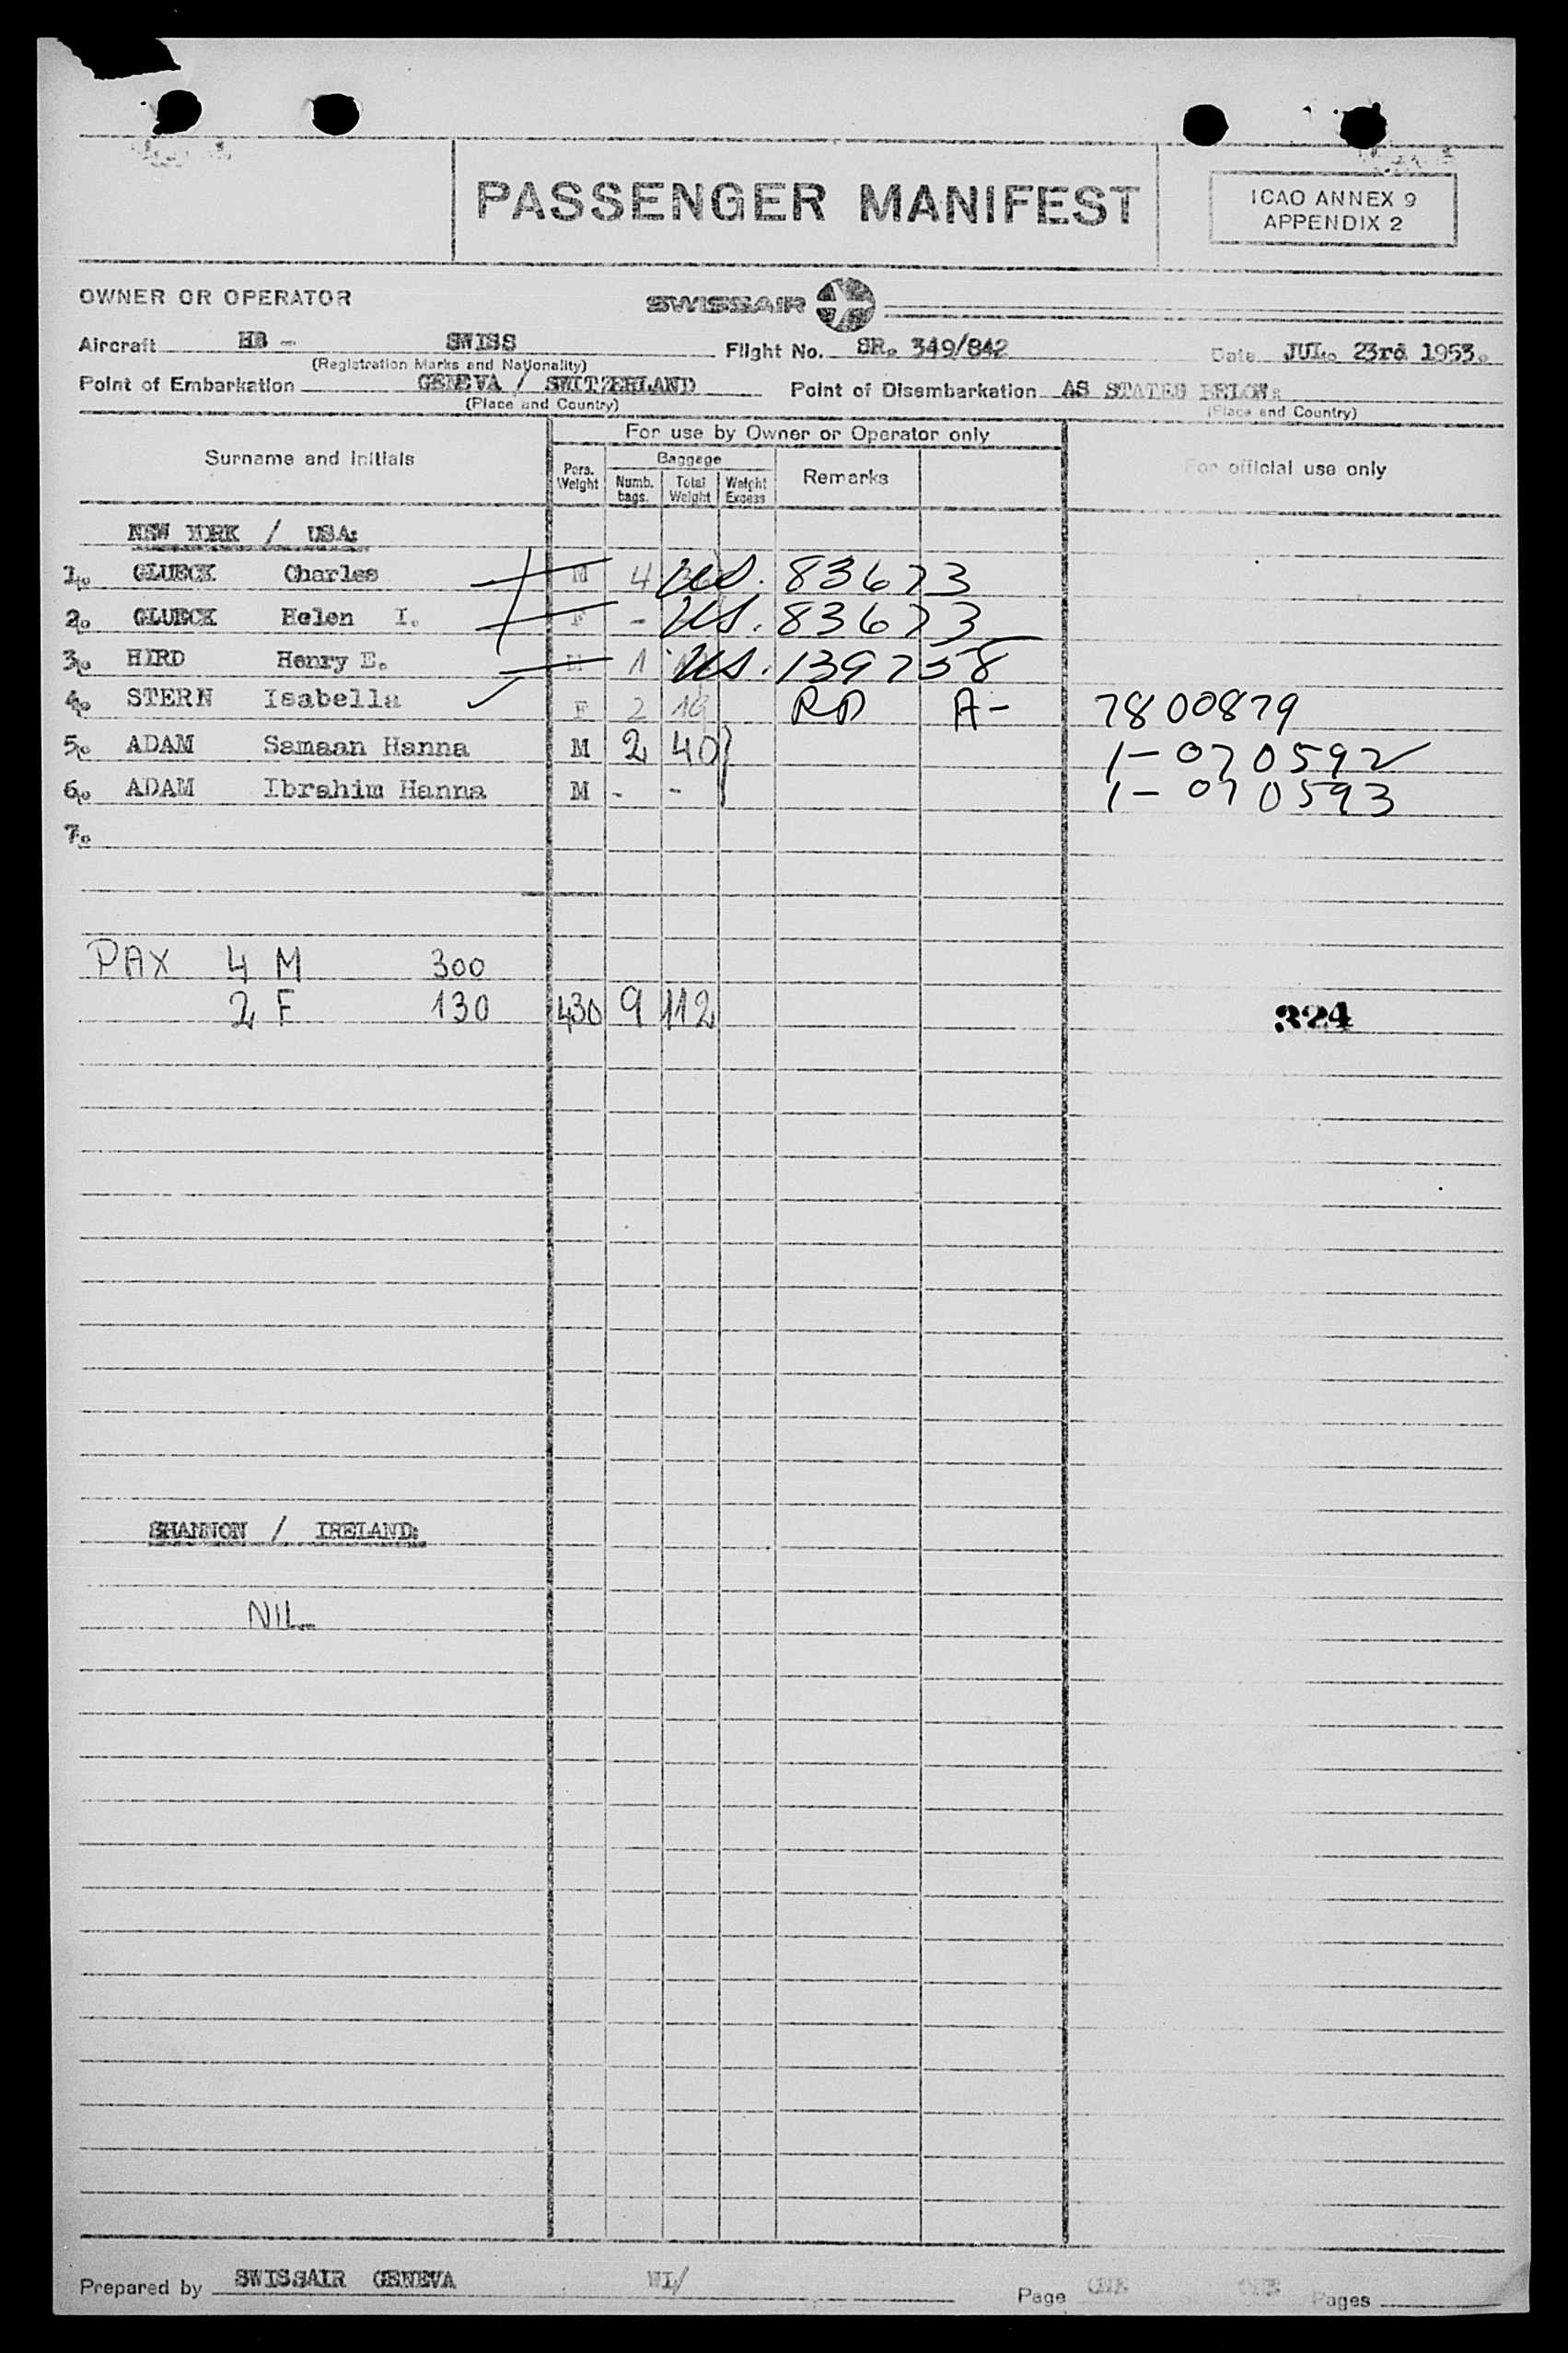 PASSENGER MANIFEST
ICAO ANNEX 9
APPENDIX 2
OWNER OR OPERATOR SWISSAIR
Aircraft HB - SWISS Flight No. SR. 349/842 Date JUL. 23rd 1953.
(Registration Marks and Nationality)
Point of Embarkation GENEVA / SWITZERLAND Point of Disembarkation AS STATES BELOW:
(Place and Country) (Place and Country)
For use by Owner or Operator only
Surname and Initials Pers. Weight Baggage Numb. bags. Total Weight Weight Excess Remarks For official use only
NEW YORK / USA:
1. GLUECK Charles M 4 US. 83673
2. GLUECK Helen I. F - US. 83673
3. HIRD Henry E. M 1 US. 139758
4. STERN Isabella F 2 19 RP A- 7800879
5. ADAM Samaan Hanna M 2 40 1-070592
6. ADAM Ibrahim Hanna M - - 1-070593
7.
PAX 4 M 300
2 F 130 430 9 112 324
SHANNON / IRELAND:
NIL
Prepared by SWISSAIR GENEVA WL/ Page ONE ONE Pages